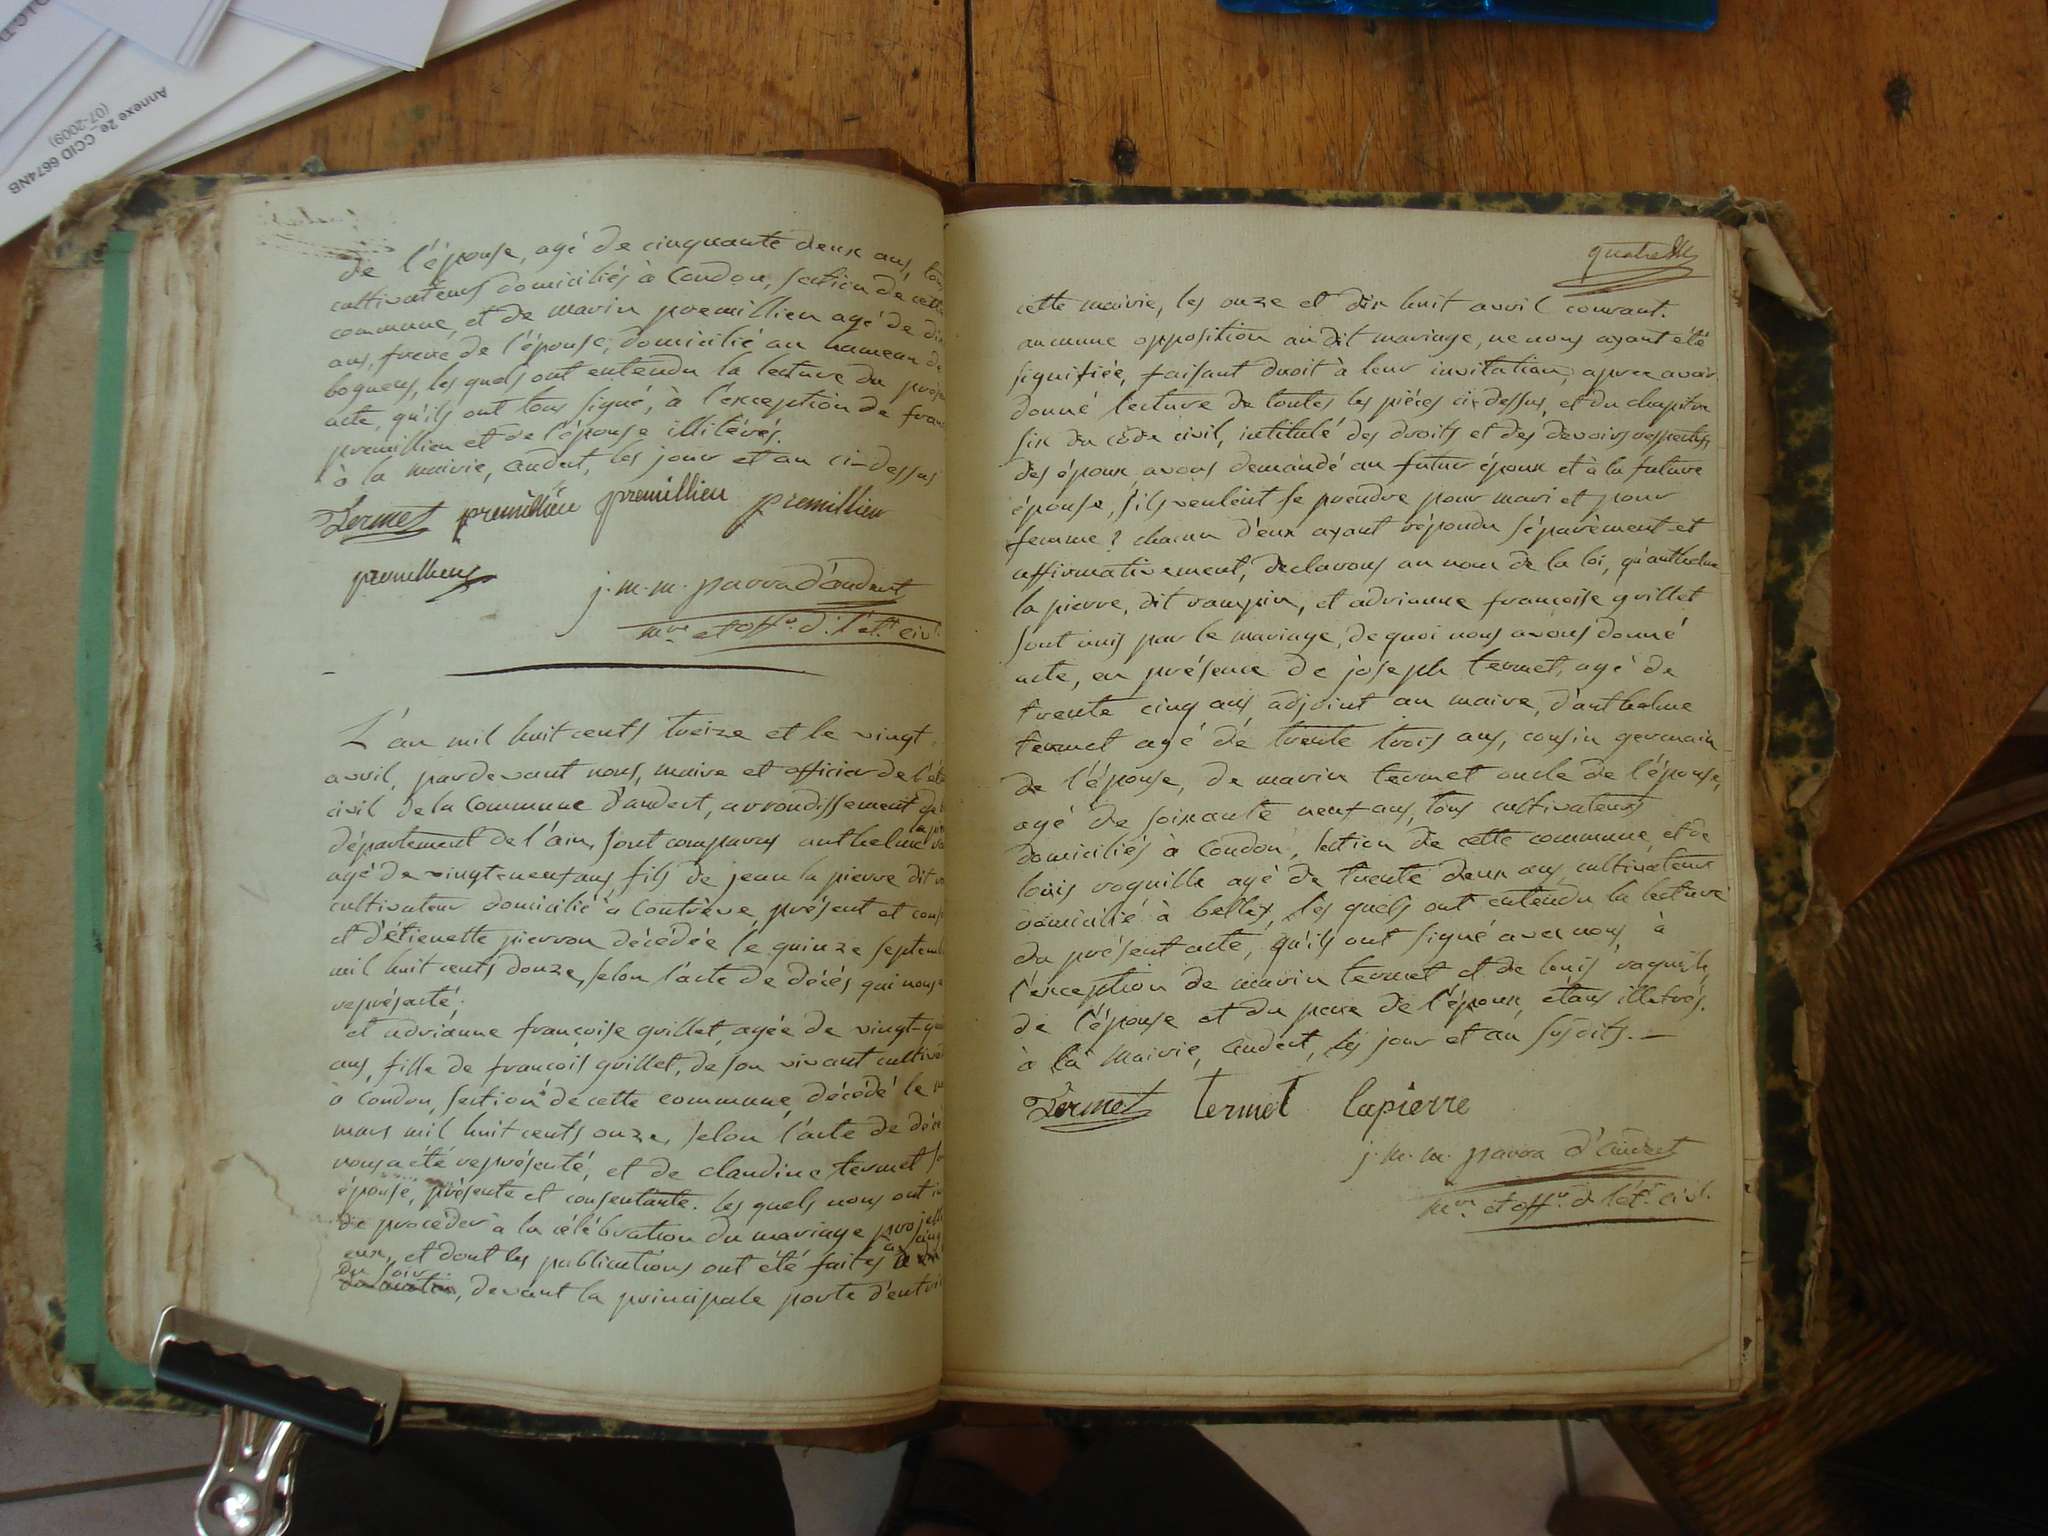 Annexe 2e_CCID 6674NB
(07-2009)
de l'épouse, agé de cinquante deux ans, tous
cultivateurs domiciliés à Condon, section de cette
commune, et de marin premillieu agé de dix
ans, frere de l'épouse, domicilié au hameau de
bognens, les quels ont entendu la lecture du
acte, qu'ils ont tous signé, à l'exception de
premillieu et de l'épouse illitérés.
à la mairie, andert, les jour et an ci-dessus
Termet premillieu premillieu premillieu
premillieu
j. m. m. parra d'andert
mre et offr. d. l'ét. civl.
L'an mil huit cents treize et le vingt
avril, pardevant nous, maire et officier de l'état
civil de la Commune d'andert, arrondissement de
département de l'ain, sont comparus anthelme
agé de vingt-neuf ans, fils de jean la pierre dit
cultivateur domicilié à Contrève, présent et
et d'étienette pierron décédée le quinze
mil huit cents douze, selon l'acte de décés qui nous
représenté;
et adrianne françoise grillet, agée de
ans, fille de françois grillet, de son vivant
à Condon, section de cette commune, décédé le
mars mil huit cents onze, selon l'acte de
nous a été représenté, et de claudine termet
épouse, présente et consentante. les quels nous ont
de procéder à la célébration du mariage
eux, et dont les publications ont été faites
du soir
du matin, devant la principale porte
quatre
cette mairie, les onze et dix huit avril courant.
aucunne opposition au dit mariage, ne nous ayant été
signifiée, faisant droit à leur invitation, apree avoir
donné lecture de toutes les piéces ci-dessus, et du chapitre
six du côde civil, intitulé des droits et des devoirs respectifs
des époux avons demandé au futur époux et à la future
épouse, s'ils veulent se prendre pour mari et pour
femme? chacun d'eux ayant répondu séparèment et
affirmativement, declarons au nom de la loi, qu'anthelme
la pierre, dit rampin, et adrianne françoise grillet
sont unis par le mariage, de quoi nous avons donné
acte, en présence de joseph termet, agé de
trente cinq ans adjoint au maire, d'anthelme
termet agé de trente trois ans, cousin germain
de l'épouse, de marin termet oncle de l'épouse,
agé de soixante neuf ans, tous cultivateurs
domiciliés à Condon, section de cette commune, et de
louis roquille agé de trente deux ans cultivateur
domicilié à belley, les quels ont entendu la lecture
du présent acte, qu'ils ont signé avec nous, à
l'exception de marin termet et de louis
de l'épouse et du pere de l'époux, étans illetrés.
à la Mairie, andert, les jour et an susdits. —
Termet termet lapierre
j. m. m. parra d'andert
mre et offr. d. l'ét. civl.